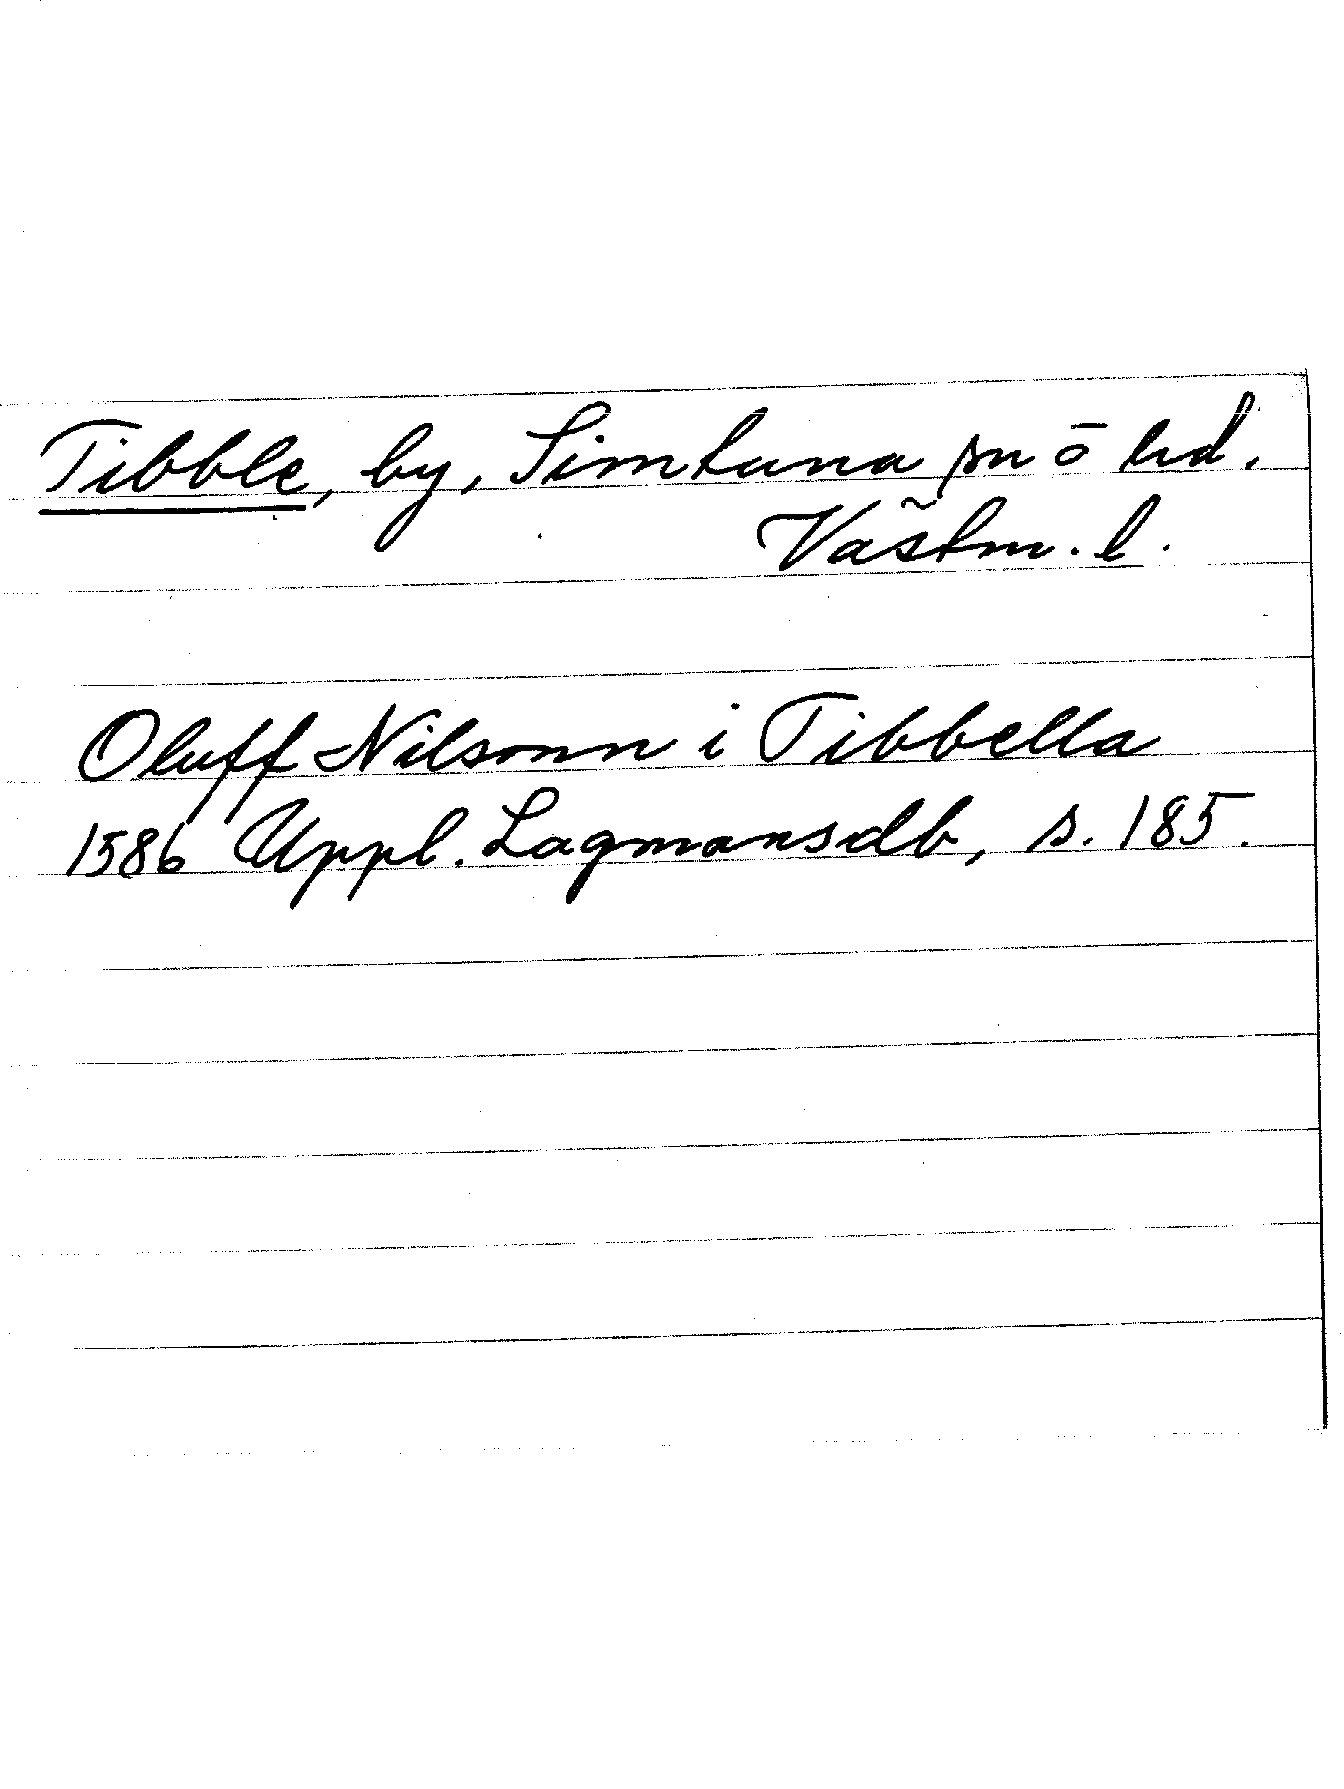 Tibble, by, Simtuna sn o hd.
Västm. l.
Oluff Nilsonn i Tibbella
1586 Uppl. Lagmansdb, s. 185.